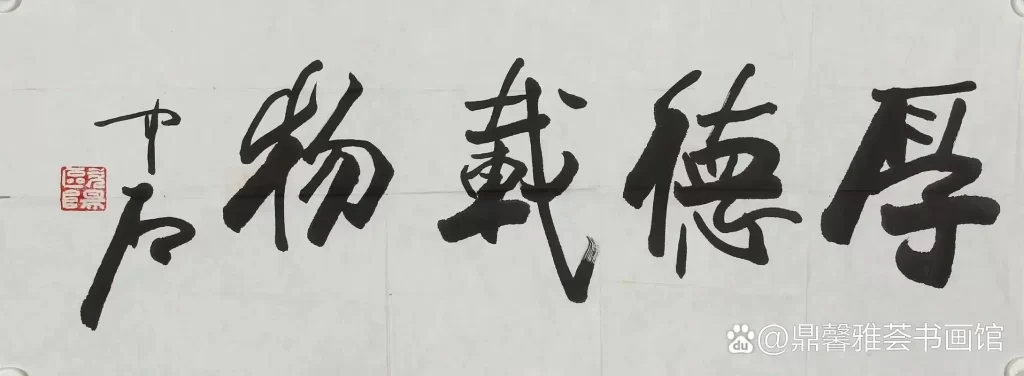 厚德载物
中石
@鼎馨雅荟书画馆